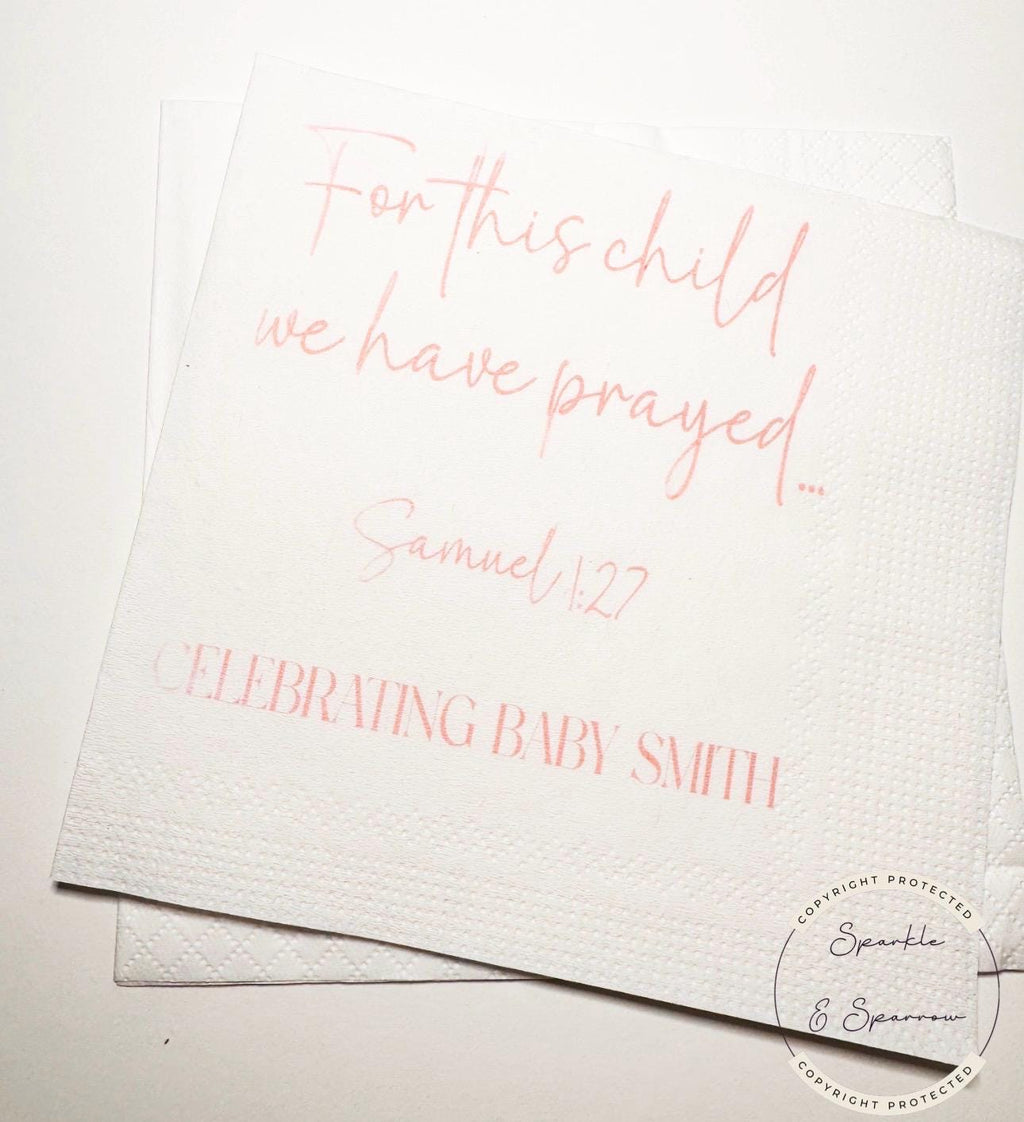 For this child
we have prayed...
Samuel 1:27
CELEBRATING BABY SMITH
COPYRIGHT PROTECTED
Sparkle
& Sparrow
COPYRIGHT PROTECTED